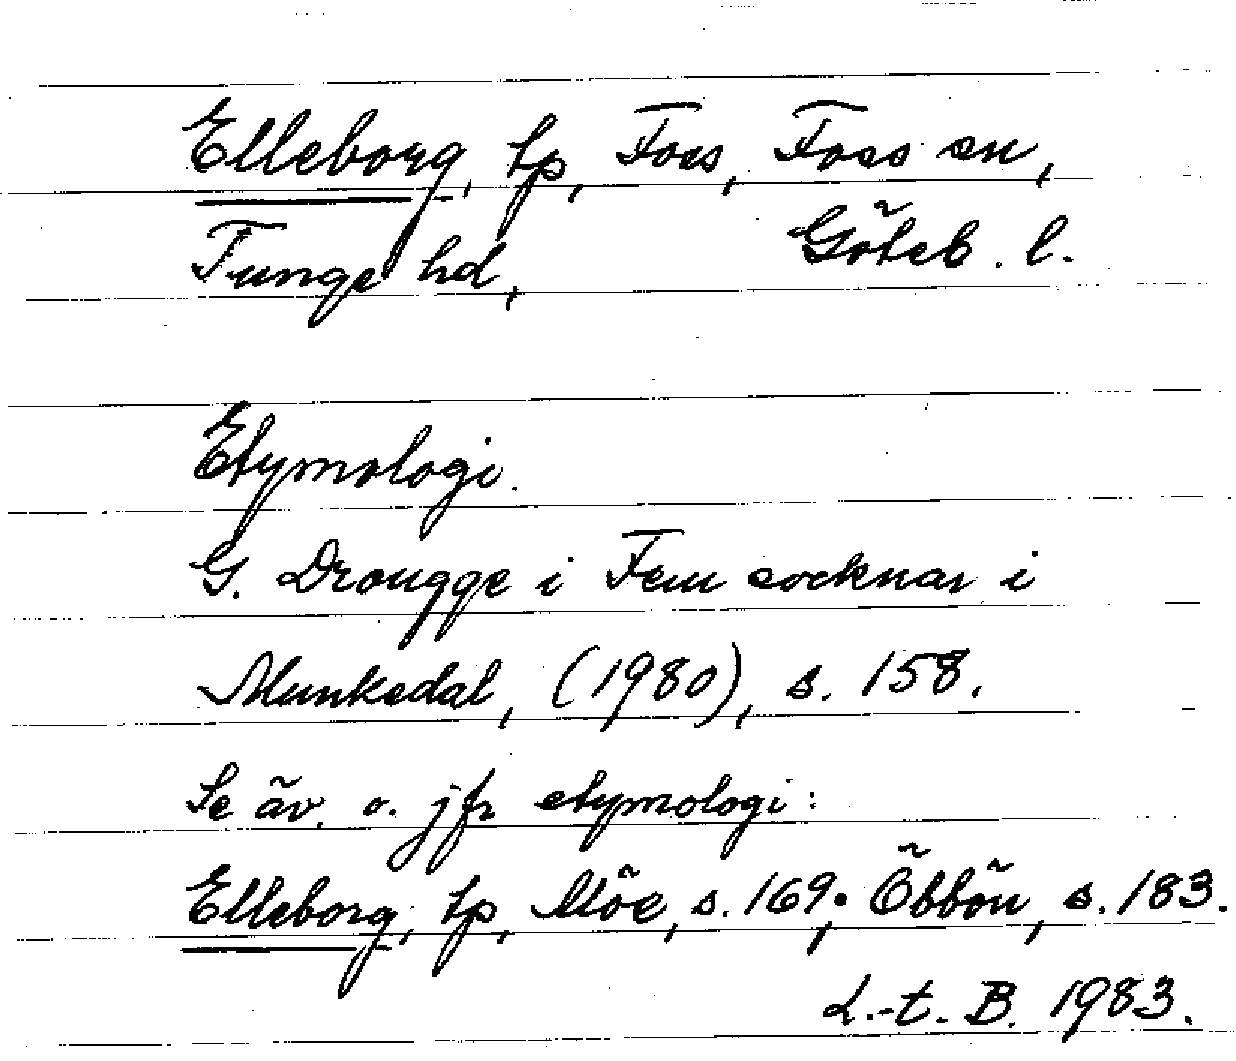 Elleborg, tp, Foss, Foss sn,
Tunge hd, Göteb. l.
Etymologi.
G. Drougge i Fem socknar i
Munkedal, (1980), s. 158.
Se äv. o. jfr etymologi:
Elleborg, tp, Möe, s. 169; Öbbön, s. 183.
L.-t. B. 1983.